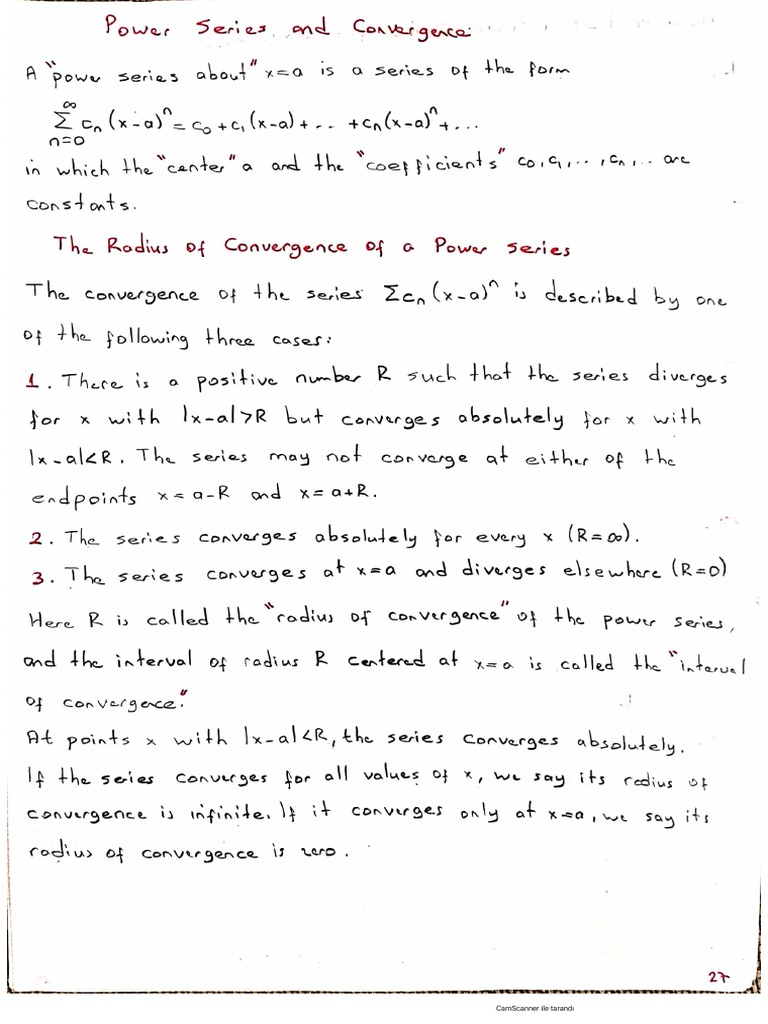 Power Series and Convergence
A "power series about" x=a is a series of the form
∞
Σ cₙ(x-a)ⁿ = c₀+c₁(x-a)+...+cₙ(x-a)ⁿ+...
n=0
in which the "center" a and the "coefficients" c₀,c₁,...,cₙ,... are
constants.
The Radius of Convergence of a Power Series
The convergence of the series Σcₙ(x-a)ⁿ is described by one
of the following three cases:
1. There is a positive number R such that the series diverges
for x with |x-a|>R but converges absolutely for x with
|x-a|<R. The series may not converge at either of the
endpoints x=a-R and x=a+R.
2. The series converges absolutely for every x (R=∞).
3. The series converges at x=a and diverges elsewhere (R=0)
Here R is called the "radius of convergence" of the power series,
and the interval of radius R centered at x=a is called the "interval
of convergence."
At points x with |x-a|<R, the series converges absolutely.
If the series converges for all values of x, we say its radius of
convergence is infinite. If it converges only at x=a, we say its
radius of convergence is zero.
27
CamScanner ile tarandı